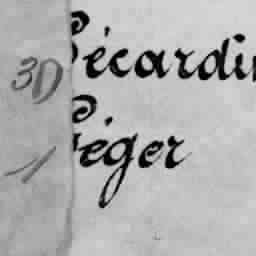 3D
écardin
éger